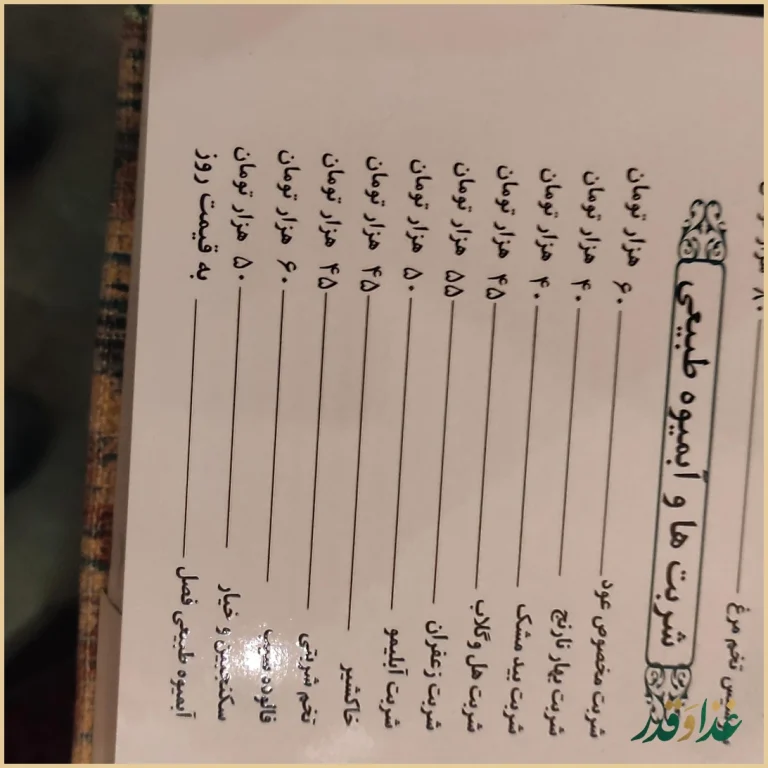 تخم مرغ
شربت ها و آبمیوه طبیعی
شربت مخصوص عود ۶۰ هزار تومان
شربت بهار نارنج ۴۰ هزار تومان
شربت بید مشک ۴۰ هزار تومان
شربت هل و گلاب ۴۵ هزار تومان
شربت زعفران ۵۵ هزار تومان
شربت آبلیمو ۵۰ هزار تومان
خاکشیر ۴۵ هزار تومان
تخم شربتی ۴۵ هزار تومان
فالوده سیب ۶۰ هزار تومان
سکنجبین و خیار ۵۰ هزار تومان
آبمیوه طبیعی فصل به قیمت روز
غذا و قدر